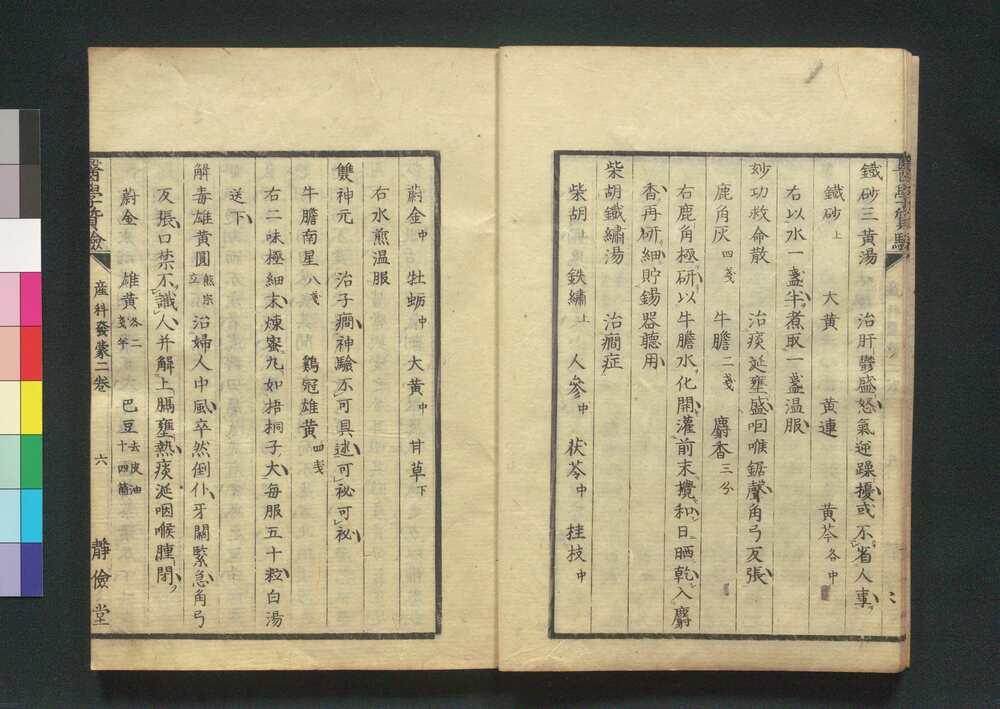 鐵砂三黄湯　治肝鬱盛怒氣逆躁擾或不省人事
鐵砂上　大黄　黄連　黄芩各中
右以水一盞半煮取一盞温服
妙功救命散　治痰延壅盛咽喉鋸聲角弓反張
鹿角灰四戔　牛膽二戔　麝香三分
右鹿角極研以牛膽水化開灌前末攪和日晒乾入麝
香再研細貯鍚器聽用
柴胡鐵繡湯　治癇症
柴胡上　鉄繡上　人參中　茯苓中　桂枝中
蔚金中　牡蛎中　大黄中　甘草下
右水煎温服
雙神元　治子癇神驗不可具述可祕可祕
牛膽南星八戔　鷄冠雄黄四戔
右二味極細末煉蜜丸如梧桐子大毎服五十粒白湯
送下
解毒雄黄圓　治婦人中風卒然倒仆牙關緊急角弓
反張口禁不識人并解上膈壅熱痰涎咽喉腫閉
蔚金　雄黄各二戔半　巴豆去皮油十四箇
醫學質驗
産科發蒙二卷
六
靜儉堂